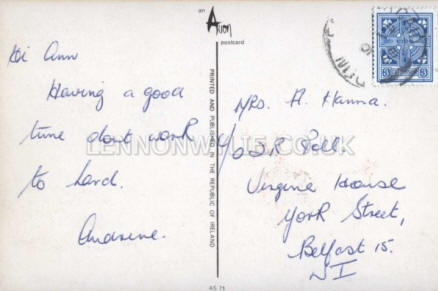 an
Avion
postcard
Hi Ann
Having a good
time dont work
to hard.
Andrene.
PRINTED AND PUBLISHED IN THE REPUBLIC OF IRELAND
LENNONWYLIE.CO.UK
Mrs. A. Hanna.
YODR Poll.
Virginia House
York Street,
Belfast 15.
N I
3
AS 71